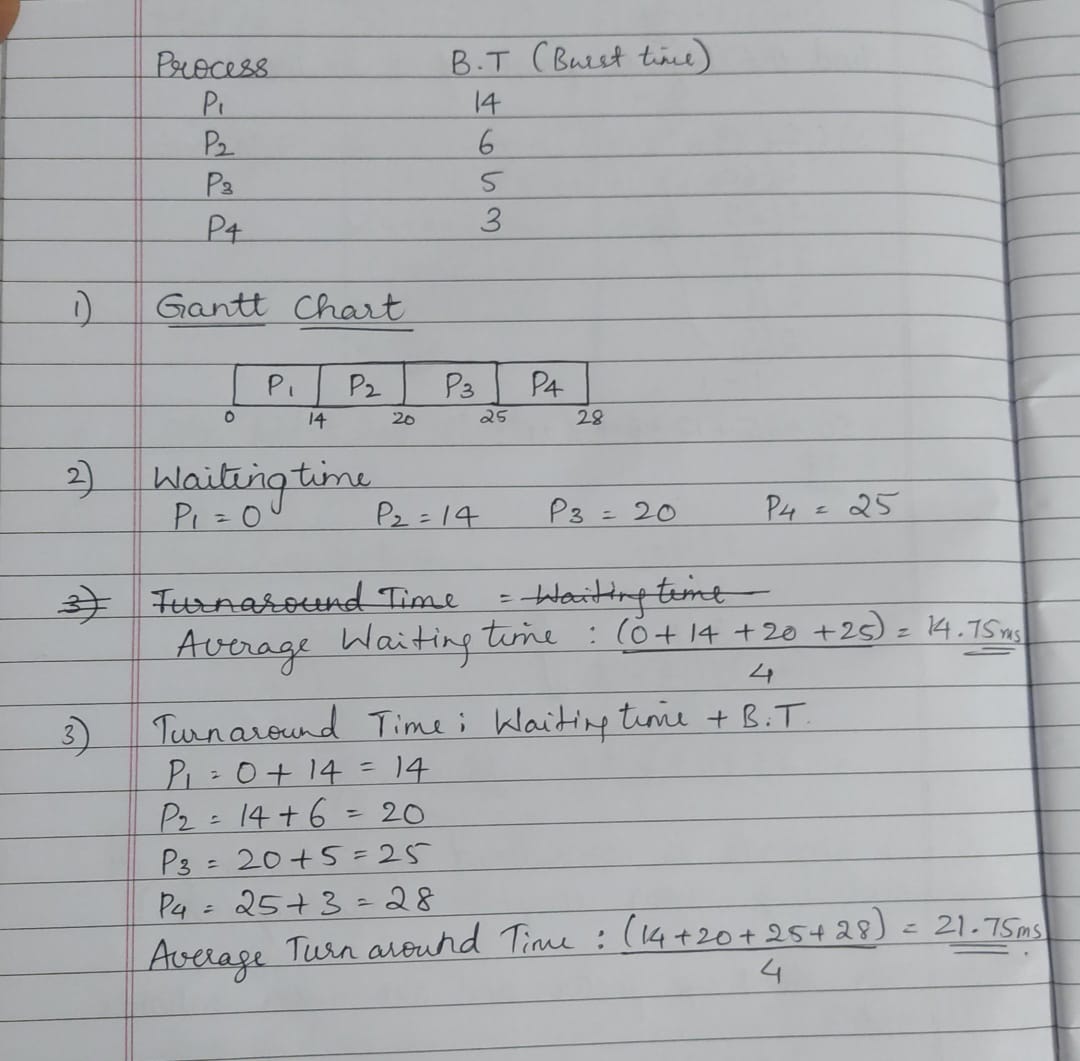 Process B.T (Burst time)
P1 14
P2 6
P3 5
P4 3
1) Gantt Chart
P1 P2 P3 P4
0 14 20 25 28
2) Waiting time
P1 = 0 P2 = 14 P3 = 20 P4 = 25
3) Turnaround Time = Waiting time
Average Waiting time : (0 + 14 + 20 + 25) = 14.75ms
4
3) Turnaround Time : Waiting time + B.T.
P1 = 0 + 14 = 14
P2 = 14 + 6 = 20
P3 = 20 + 5 = 25
P4 = 25 + 3 = 28
Average Turn around Time : (14 + 20 + 25 + 28) = 21.75ms.
4